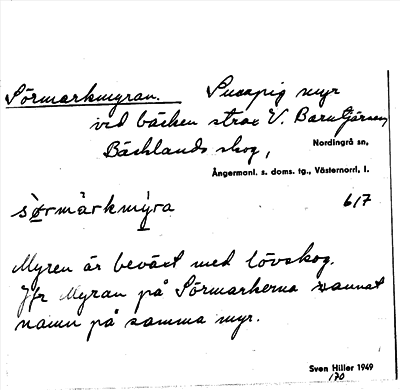 Sörmarkmyran. Sumpig myr
vid bäcken strax V. Barntjärnen
Bäcklands skog, Nordingrå sn,
Ångermanl. s. doms. tg., Västernorrl. l.
sörmárkmýra 6/7
Myren är beväxt med lövskog.
Jfr Myran på Sörmarkerna annat
namn på samma myr.
Sven Hiller 1949
170